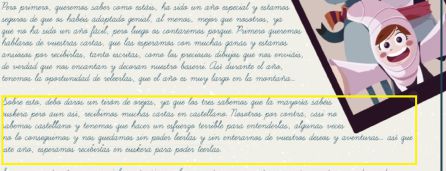 Pero primero, queremos saber como estáis, ha sido un año especial y estamos
seguros de que os habéis adaptado genial, al menos, mejor que nosotros, ya
que no ha sido un año fácil, pero luego os contaremos porque. Primero queremos
hablaros de vuestras cartas, que las esperamos con muchas ganas y estamos
ansiosos por recibirlas, tanto escritas, como los preciosos dibujos que nos enviáis,
de verdad que nos encantan y decoran nuestro baserri. Así durante el año,
tenemos la oportunidad de releerlas, que el año es muy largo en la montaña...
Sobre esto, debo daros un tirón de orejas, ya que los tres sabemos que la mayoría sabéis
euskera pero aun así, recibimos muchas cartas en castellano. Nosotros por contra, casi no
sabemos castellano y tenemos que hacer un esfuerzo terrible para entenderlas, algunas veces
no lo conseguimos y nos quedamos sin poder leerlas y sin enterarnos de vuestros deseos y aventuras... así que
este año, esperamos recibirlas en euskera para poder leerlas.